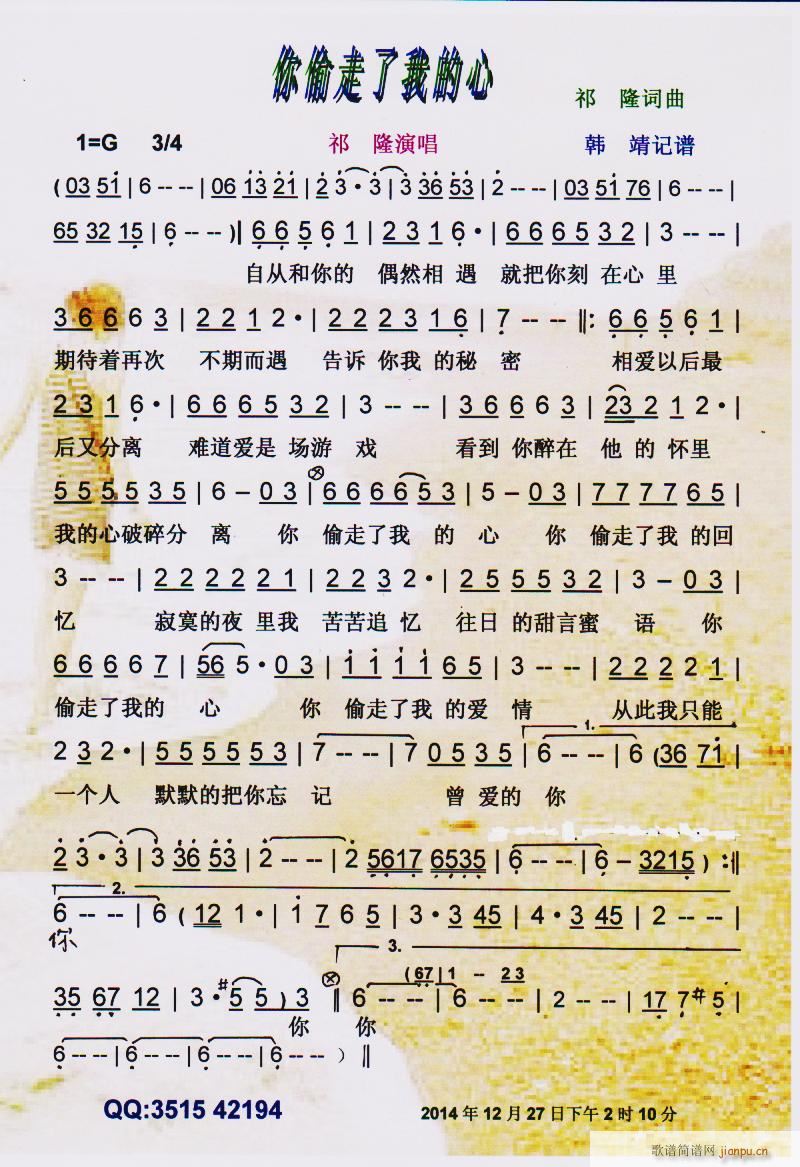 你偷走了我的心
祁 隆词曲
1=G 3/4 祁 隆演唱 韩 靖记谱
(03 51 | 6 - - - | 06 13 21 | 2 3·3 | 3 36 53 | 2 - - - | 03 51 76 | 6 - - - |
65 32 15 | 6 - - - )‖ 6 6 5 6 1 | 2 3 1 6· | 6 6 6 5 3 2 | 3 - - - |
自从和你的 偶然相 遇 就把你刻 在心 里
3 6 6 6 3 | 2 2 1 2· | 2 2 2 3 1 6 | 7 - - - ‖: 6 6 5 6 1 |
期待着再次 不期而遇 告诉 你我 的秘 密 相爱以后最
2 3 1 6· | 6 6 6 5 3 2 | 3 - - - | 3 6 6 6 3 | 23 2 1 2· |
后又分离 难道爱是 场游 戏 看到 你醉在 他 的 怀里
5 5 5 5 3 5 | 6 – 0 3 | 6 6 6 6 5 3 | 5 – 0 3 | 7 7 7 7 6 5 |
我的心破碎分 离 你 偷走了我 的 心 你 偷走了我 的回
3 - - - | 2 2 2 2 2 1 | 2 2 3 2· | 2 5 5 5 3 2 | 3 – 0 3 |
忆 寂寞的夜 里我 苦苦追 忆 往日 的甜言蜜 语 你
6 6 6 6 7 | 56 5·0 3 | 1 1 1 1 6 5 | 3 - - - | 2 2 2 2 1 |
偷走了我的 心 你 偷走了我 的爱 情 从此我只能
1.
2 3 2· | 5 5 5 5 5 3 | 7 - - - | 7 0 5 3 5 | 6 - - - | 6 (36 71 |
一个人 默默的把你忘 记 曾 爱的 你
2 3·3 | 3 36 53 | 2 - - - | 2 5617 6535 | 6 - - - | 6 – 3215 ) :‖
2.
6 - - - | 6 ( 12 1· | 1 7 6 5 | 3·3 45 | 4·3 45 | 2 - - - |
你
3.
(67 | 1 -- 2 3
35 67 12 | 3·#5 5 ) 3 ‖ 6 - - - | 6 - - - | 2 - - - | 17 7 #5 |
你 你
6 - - - | 6 - - - | 6 - - - | 6 - - - ) ‖
QQ:3515 42194
2014 年 12 月 27 日下午 2 时 10 分
歌谱简谱网 jianpu.cn